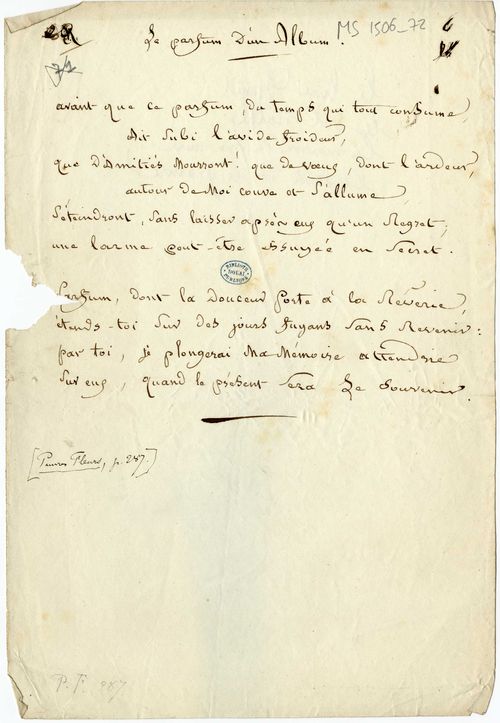 MS 1506_72
71
Le parfum D'un Album.
avant que ce parfum, du temps qui tout consume,
ait subi l'avide froideur,
que D'Amitiés Mourront ! que de vœux, dont l'ardeur,
autour de Moi couve et S'allume,
S'éteindront, sans laisser après eux qu'un Regret,
une larme peut-être essuyée en Secret.
BIBLIOTH
DOUAI
PUBLIQUE
Parfum, dont la Douceur porte à la Rêverie,
étends-toi sur des jours fuyans sans Revenir :
par toi, je plongerai Ma Mémoire attendrie
sur eux, quand le présent sera Le Souvenir.
[Pauvres Fleurs, p. 287.]
P. F. 287